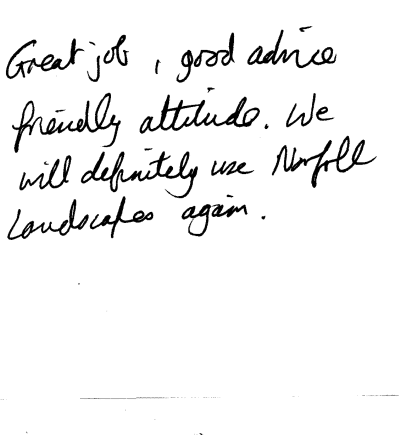 Great job, good advice
friendly attitude. We
will definitely use Norfolk
Landscapes again.